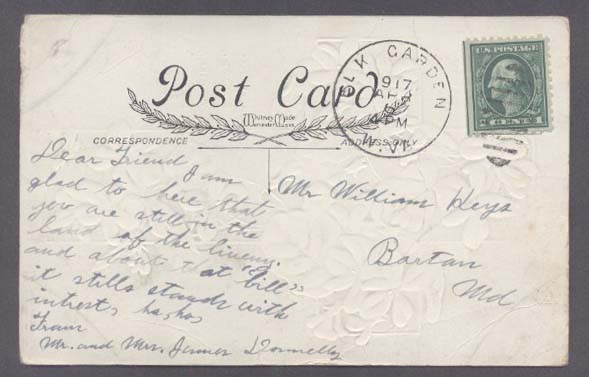 Post Card
Whitney Made
Worcester, Mass
CORRESPONDENCE
ADDRESS ONLY
ELK GARDEN
1917
AP
PM
W. VA.
U.S. POSTAGE
1 CENTS 1
Dear Friend
I am
glad to here that
you are still in the
land of the liveing.
and about that "bill"
it stills stands with
intrests ha has
From
Mr. and Mrs. James Donnelly
Mr William Keys
Bartan
Md